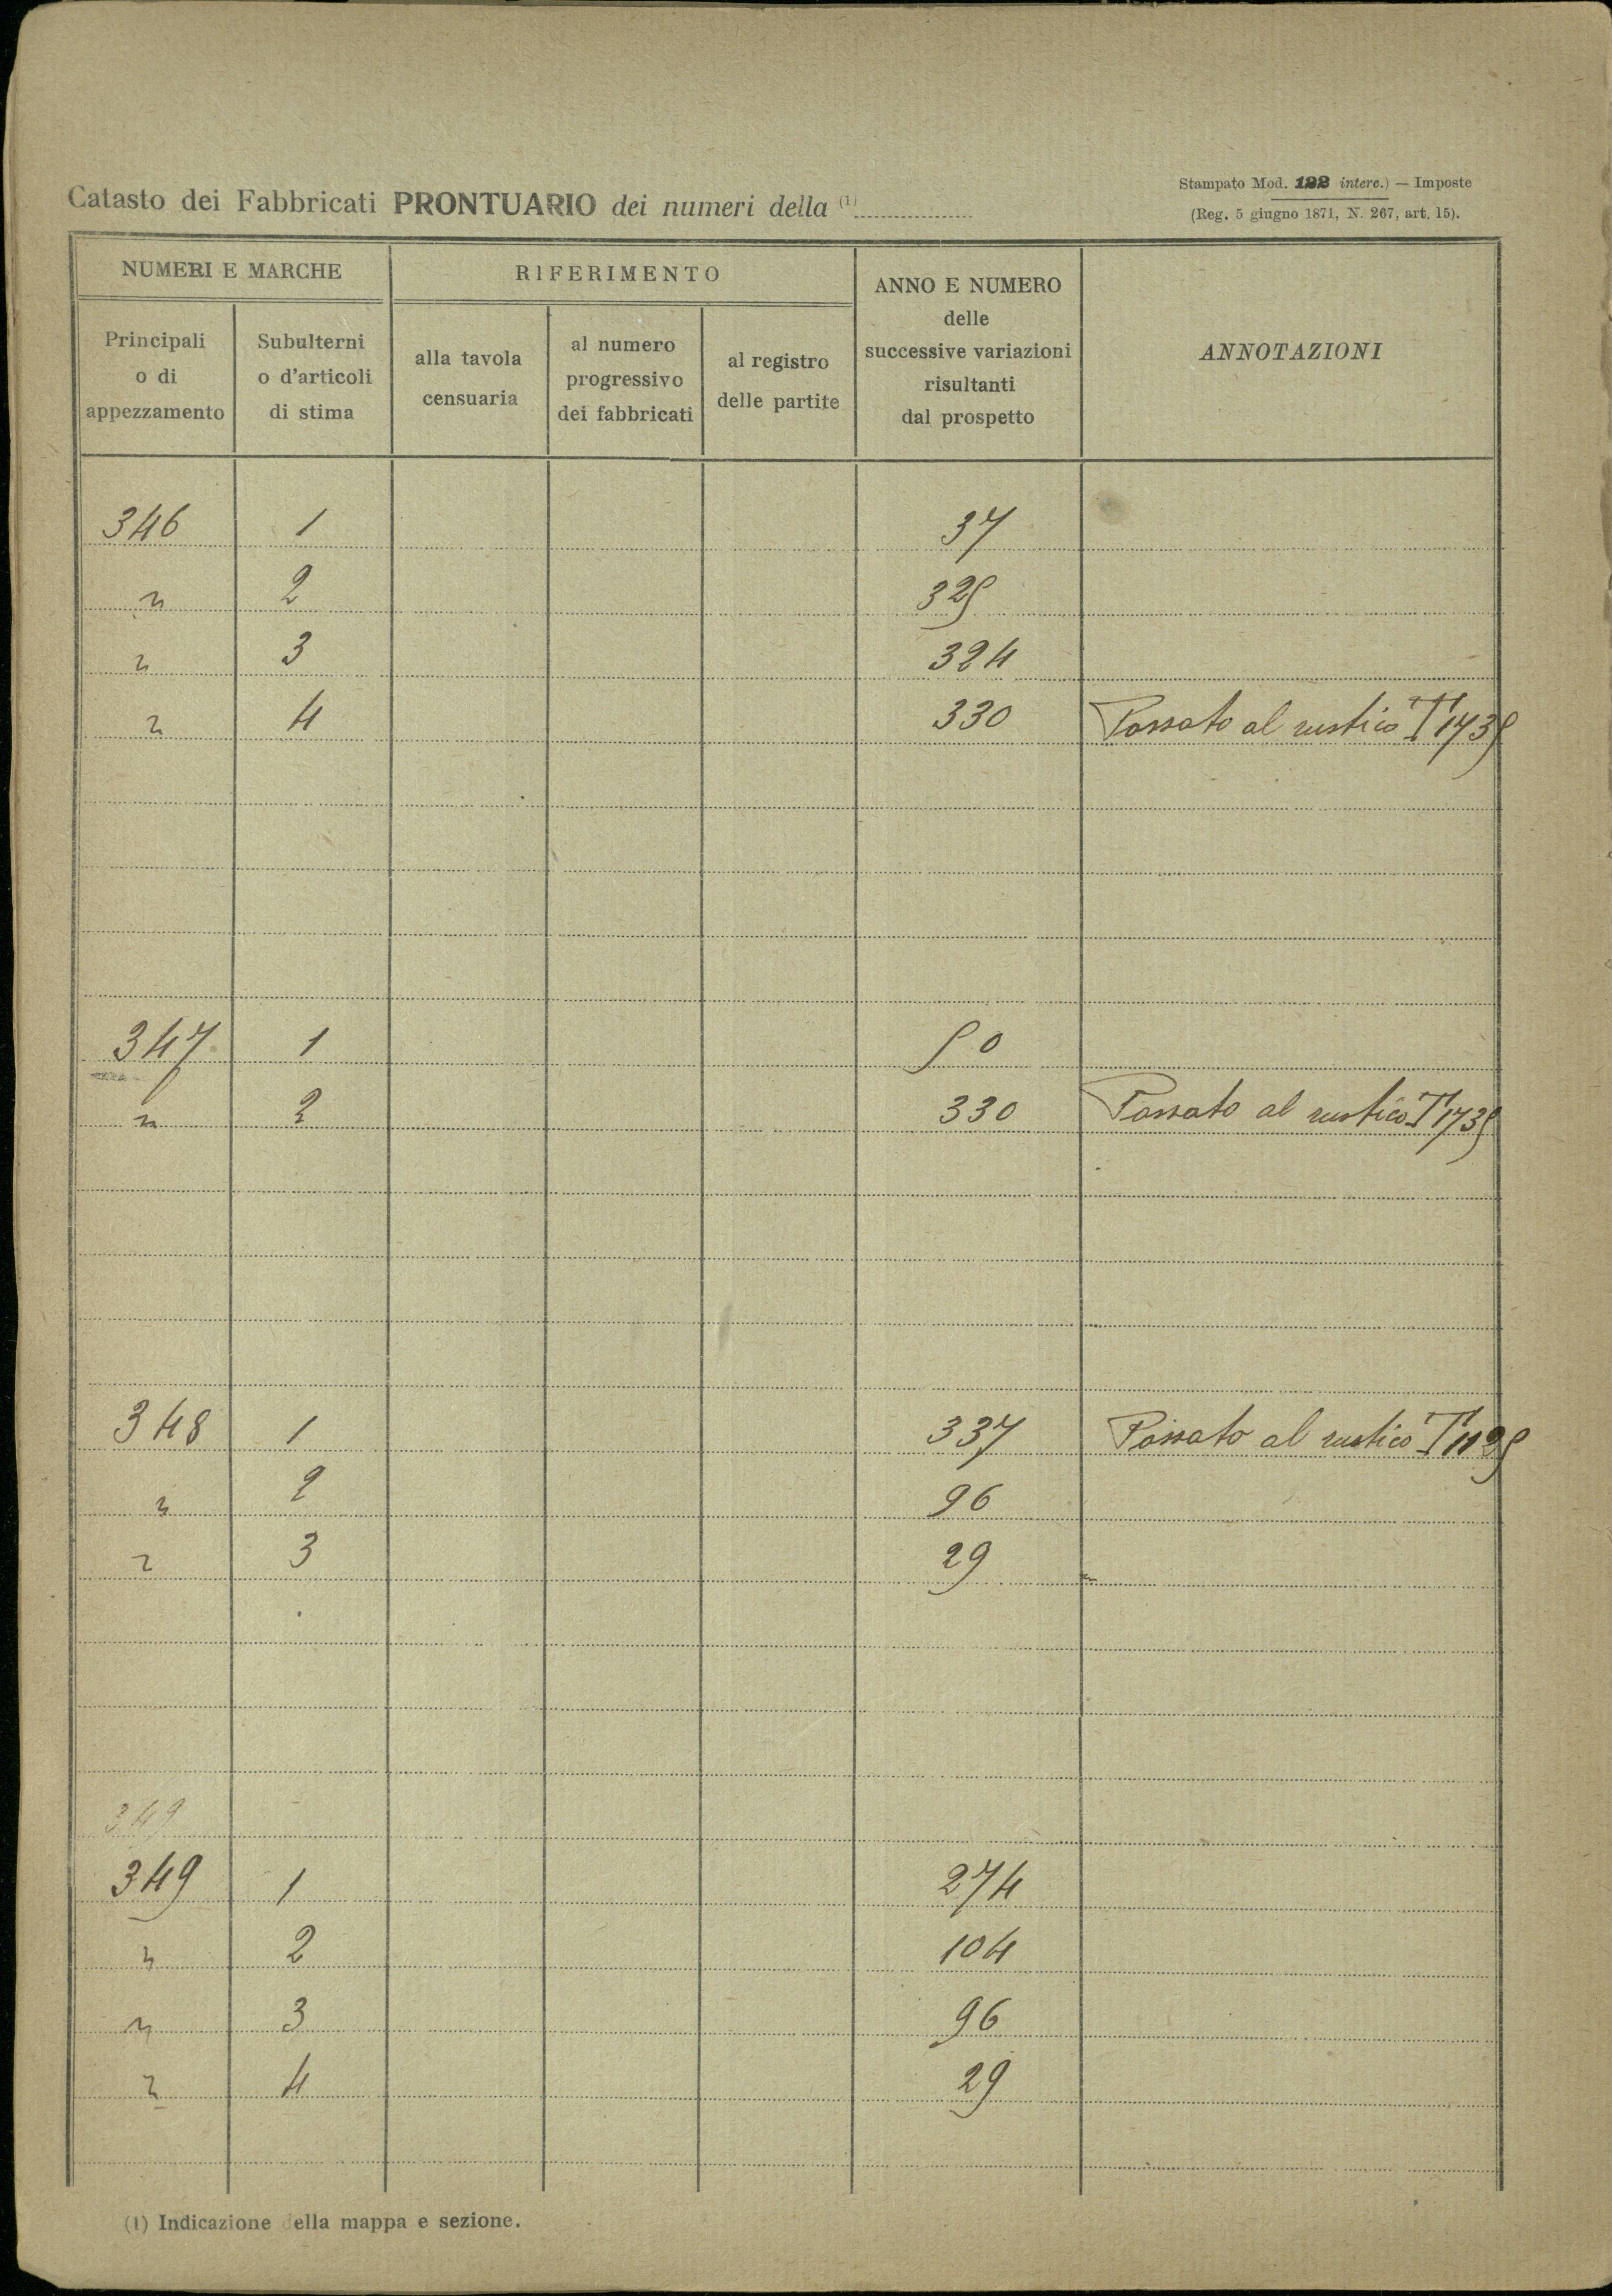 Catasto dei Fabbricati PRONTUARIO dei numeri della (1)
Stampato Mod. 122 interc.) — Imposte
(Reg. 5 giugno 1871, N. 267, art. 15).
NUMERI E MARCHE
RIFERIMENTO
ANNO E NUMERO
delle
successive variazioni
risultanti
dal prospetto
ANNOTAZIONI
Principali
o di
appezzamento
Subulterni
o d'articoli
di stima
alla tavola
censuaria
al numero
progressivo
dei fabbricati
al registro
delle partite
346 1 37
" 2 325
" 3 324
" 4 330 Passato al rustico T 1735
347 1 50
" 2 330 Passato al rustico T 1735
348 1 337 Passato al rustico T 1125
" 2 96
" 3 29
349
349 1 274
" 2 104
" 3 96
" 4 29
(1) Indicazione della mappa e sezione.